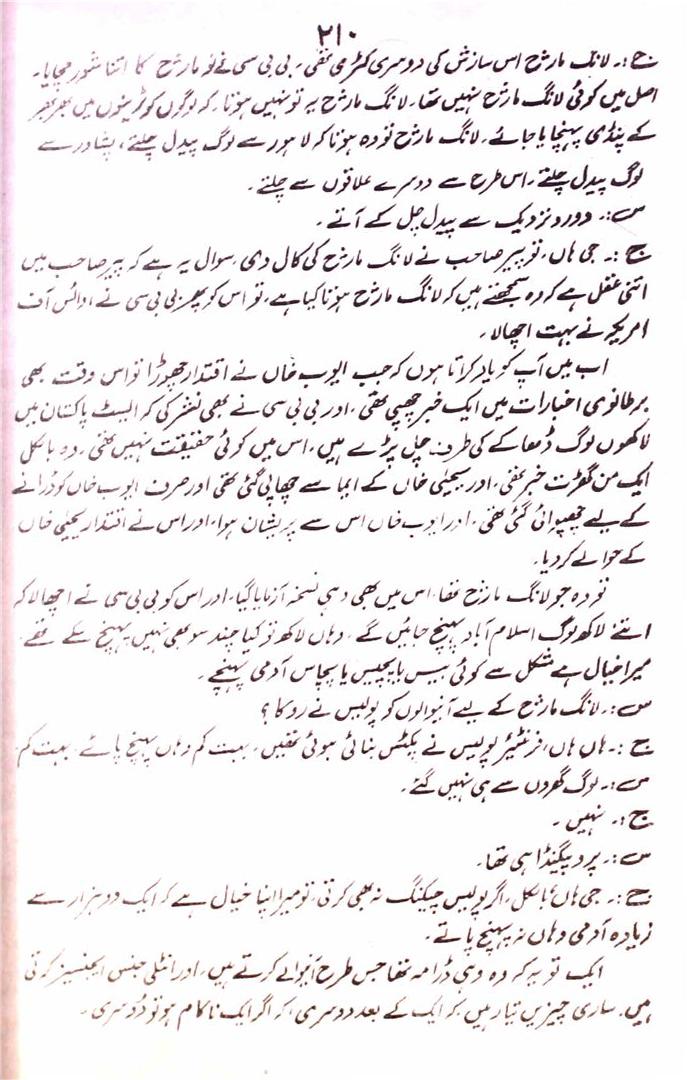 ۲۱۰
ج :۔ لانگ مارچ اس سازش کی دوسری کڑی تھی ۔ بی بی سی نے تو مارچ کا اتنا شور مچایا۔
اصل میں کوئی لانگ مارچ نہیں تھا۔ لانگ مارچ یہ تو نہیں ہوتا۔ کہ لوگوں کو ٹرینوں میں بھر بھر
کے پنڈی پہنچایا جائے۔ لانگ مارچ تو وہ ہوتا کہ لاہور سے لوگ پیدل چلتے، پشاور سے
لوگ پیدل چلتے۔ اس طرح سے دوسرے علاقوں سے چلتے۔
س :۔ دور و نزدیک سے پیدل چل کے آتے ۔
ج :۔ جی ہاں، تو پیر صاحب نے لانگ مارچ کی کال دی، سوال یہ ہے کہ پیر صاحب میں
اتنی عقل ہے کہ وہ سمجھتے ہیں کہ لانگ مارچ ہوتا کیا ہے، تو اس کو پھر بی بی سی نے، وائس آف
امریکہ نے بہت اچھالا۔
اب میں آپ کو یاد کراتا ہوں کہ جب ایوب خاں نے اقتدار چھوڑا تو اس وقت بھی
برطانوی اخبارات میں ایک خبر چھپی تھی ، اور بی بی سی نے بھی نشر کی کہ ایسٹ پاکستان میں
لاکھوں لوگ ڈھاکے کی طرف چل پڑے ہیں، اس میں کوئی حقیقت نہیں تھی ، وہ بالکل
ایک من گھڑت خبر تھی ، اور یحییٰ خاں کے ایما سے چھاپی گئی تھی اور صرف ایوب خاں کو ڈرانے
کے لیے چھپوائی گئی تھی ، اور ایوب خاں اس سے پریشان ہوا، اور اس نے اقتدار یحییٰ خاں
کے حوالے کر دیا۔
تو وہ جو لانگ مارچ تھا، اس میں بھی وہی نسخہ آزمایا گیا، اور اس کو بی بی سی نے اچھالا کہ
اتنے لاکھ لوگ اسلام آباد پہنچ جائیں گے ، وہاں لاکھ تو کیا چند سو بھی نہیں پہنچ سکے تھے،
میرا خیال ہے مشکل سے کوئی بیس یا پچیس یا پچاس آدمی پہنچے۔
س :۔ لانگ مارچ کے لیے آنیوالوں کو پولیس نے روکا ؟
ج :۔ ہاں ہاں، فرنٹیئر پولیس نے پکٹس بنائی ہوئی تھیں، بہت کم وہاں پہنچ پائے، بہت کم،
س :۔ لوگ گھروں سے ہی نہیں گئے۔
ج :۔ نہیں ۔
س :۔ پروپیگنڈا ہی تھا۔
ج :۔ جی ہاں بالکل، اگر پولیس چیکنگ نہ بھی کرتی، تو میرا اپنا خیال ہے کہ ایک دو ہزار سے
زیادہ آدمی وہاں نہ پہنچ پاتے۔
ایک تو یہ کہ وہ وہی ڈرامہ تھا جس طرح آنیوالے کرتے ہیں، اور انٹلی جنس ایجنسیز کرتی
ہیں، ساری چیزیں تیار ہیں کہ ایک کے بعد دوسری، کہ اگر ایک ناکام ہو تو دوسری ۔